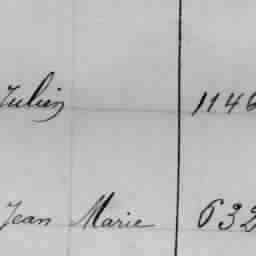 Julien 1146
Jean Marie 632